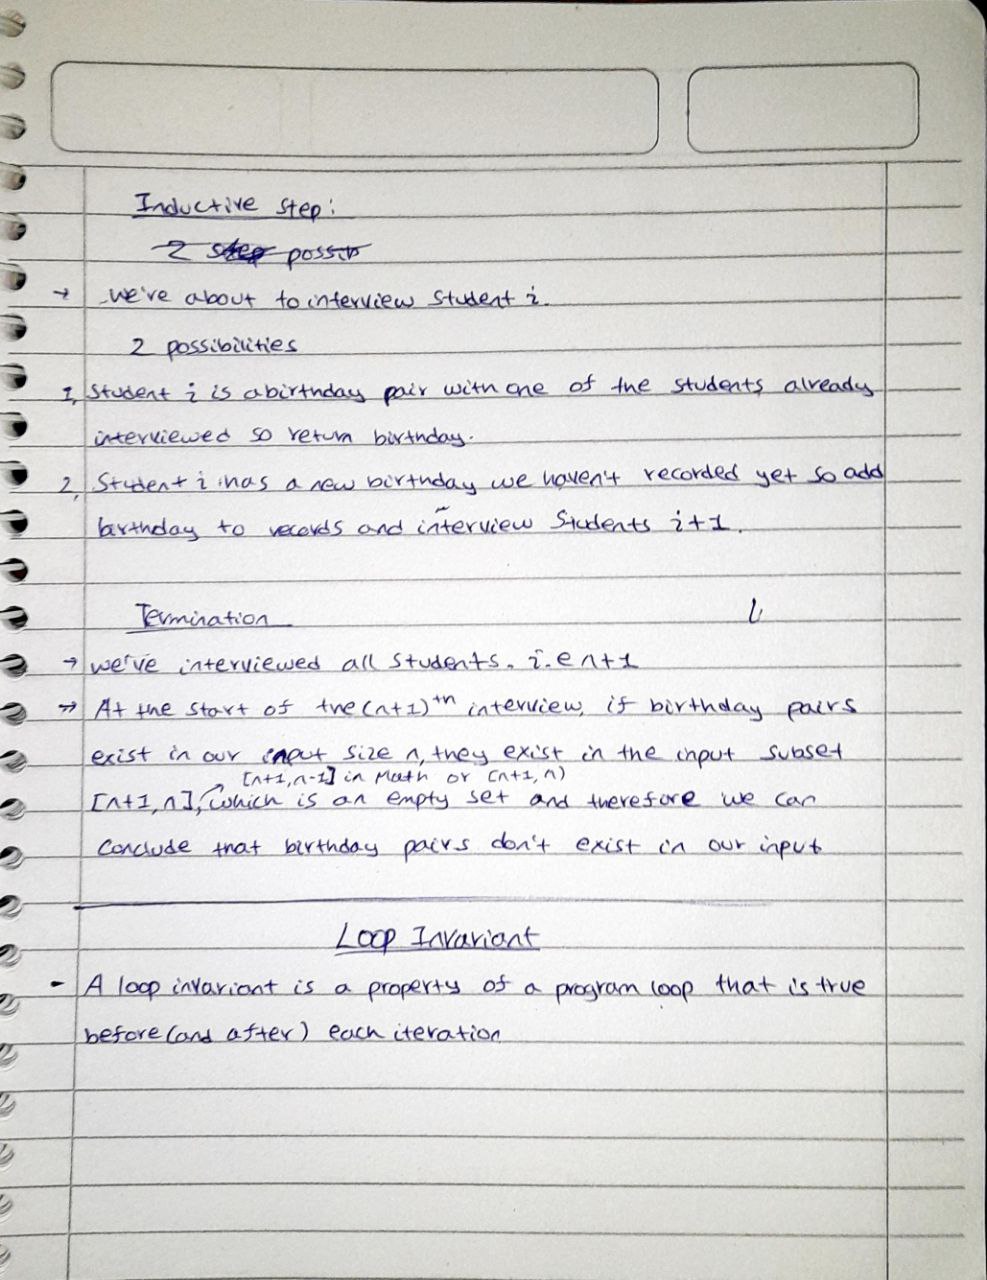 Inductive step:
2 step possib
→ we're about to interview student i.
2 possibilities
1, Student i is a birthday pair with one of the students already
interviewed so return birthday.
2, Student i has a new birthday we haven't recorded yet so add
birthday to records and interview Students i+1.
Termination
→ we've interviewed all students. i.e n+1
→ At the start of the (n+1)th interview, if birthday pairs
exist in our input size n, they exist in the input subset
[n+1,n-1] in Math or [n+1, n)
[n+1, n], which is an empty set and therefore we can
conclude that birthday pairs don't exist in our input
Loop Invariant
- A loop invariant is a property of a program loop that is true
before (and after) each iteration